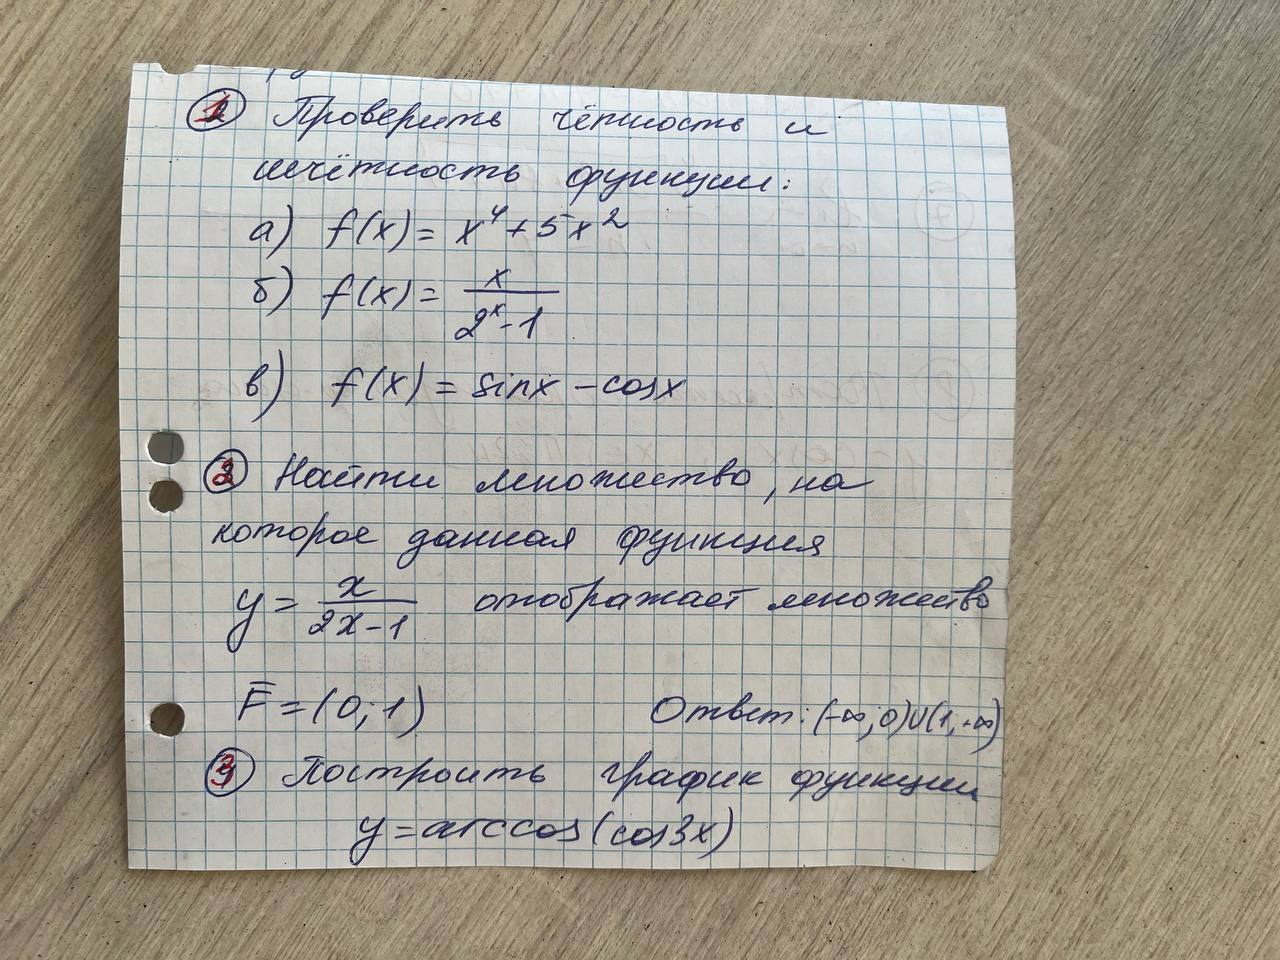 1 Проверить чётность и
нечётность функции:
а) f(x) = x⁴ + 5x²
б) f(x) = x / (2ˣ - 1)
в) f(x) = sinx - cosx
2 Найти множество, на
которое данная функция
y = x / (2x - 1) отображает множество
F = (0; 1) Ответ: (-∞; 0)∪(1, +∞)
3 Построить график функции
y = arccos(cos3x)